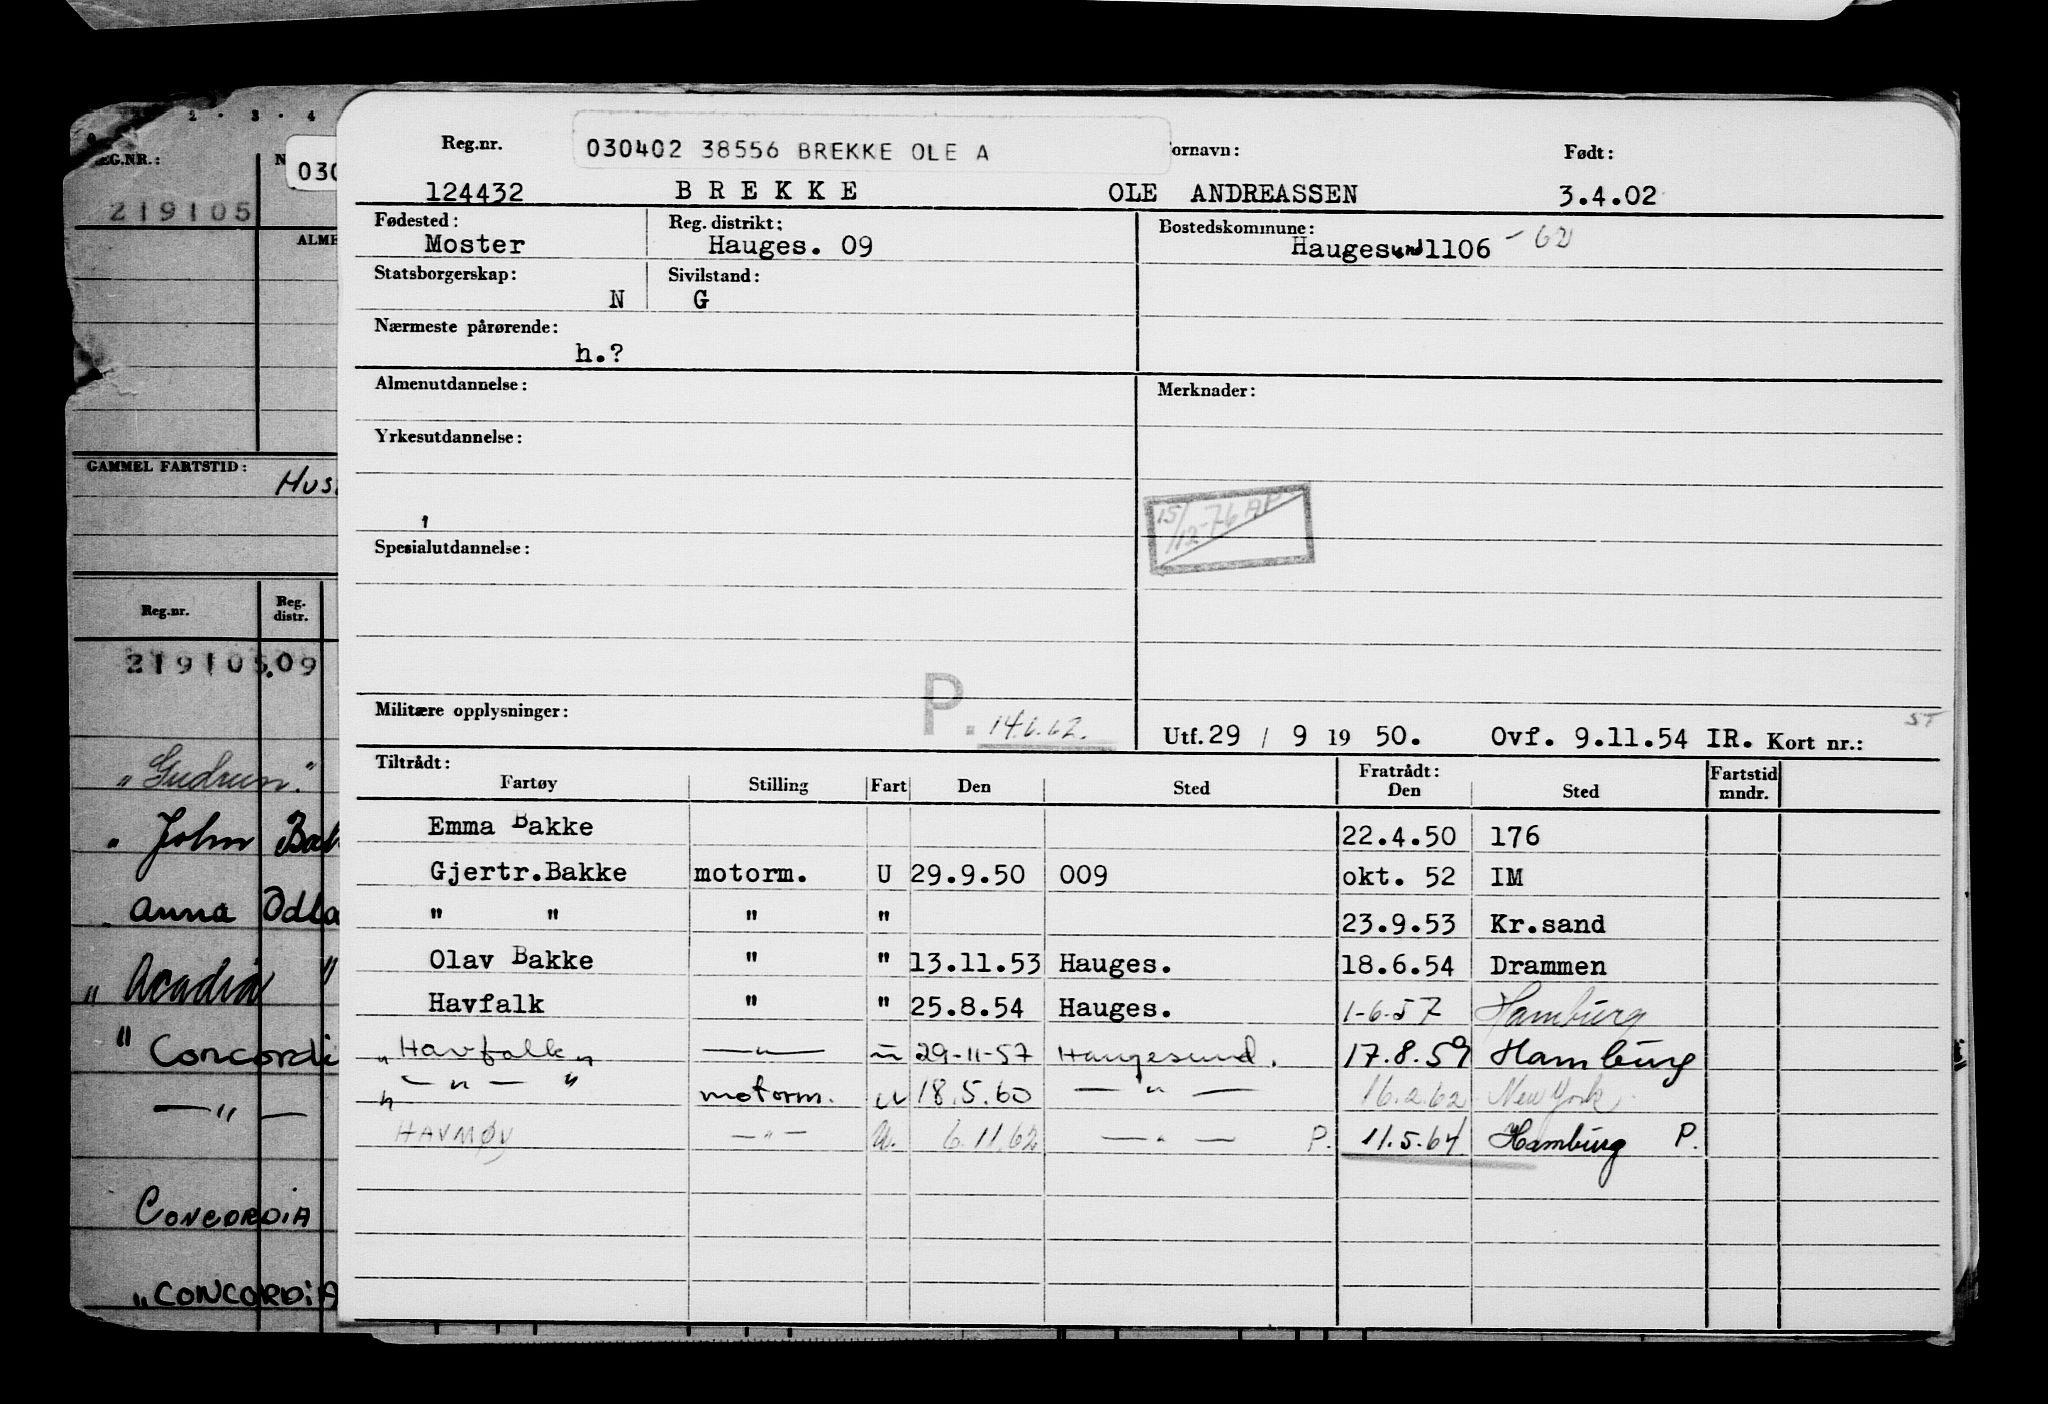 2 · 3 · 4
REG.NR.:
030
219105
ALME
GAMMEL FARTSTID:
Hus
Reg.nr.
Reg. distr.
219105.09
"Gudrun."
" John Bak
" Anna Odla
" Acadia "
" Concordi
— " —
CONCORDIA
"CONCORDIA
Reg.nr.
030402 38556 BREKKE OLE A
ornavn:
Født:
124432 BREKKE OLE ANDREASSEN 3.4.02
Fødested: Reg. distrikt: Bostedskommune:
Moster Hauges. 09 Haugesund 1106 - 62
Statsborgerskap: Sivilstand:
N G
Nærmeste pårørende:
h.?
Almenutdannelse: Merknader:
Yrkesutdannelse:
15/12-76 AP
Spesialutdannelse:
Militære opplysninger: P. 14.6.62.
Utf. 29 / 9 19 50. Ovf. 9.11.54 IR. Kort nr.: ST
Tiltrådt: Fratrådt: Fartstid mndr.
Fartøy Stilling Fart Den Sted Den Sted
Emma Bakke 22.4.50 176
Gjertr.Bakke motorm. U 29.9.50 009 okt. 52 IM
" " " " 23.9.53 Kr.sand
Olav Bakke " " 13.11.53 Hauges. 18.6.54 Drammen
Havfalk " " 25.8.54 Hauges. 1-6-57 Hamburg
"Havfalk" — " — " 29-11-57 Haugesund. 17.8.59 Hamburg
" — " — " motorm. u 18.5.60 — " — 16.2.62 New York.
HAVMØY — " — U. 6.11.62 — " — P. 11.5.64 Hamburg P.